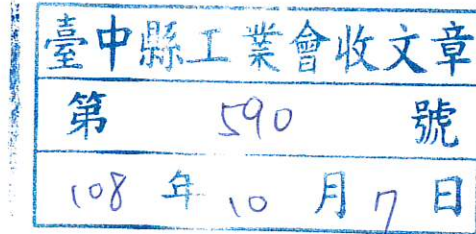 臺中縣工業會收文章
第 590 號
108 年 10 月 7 日